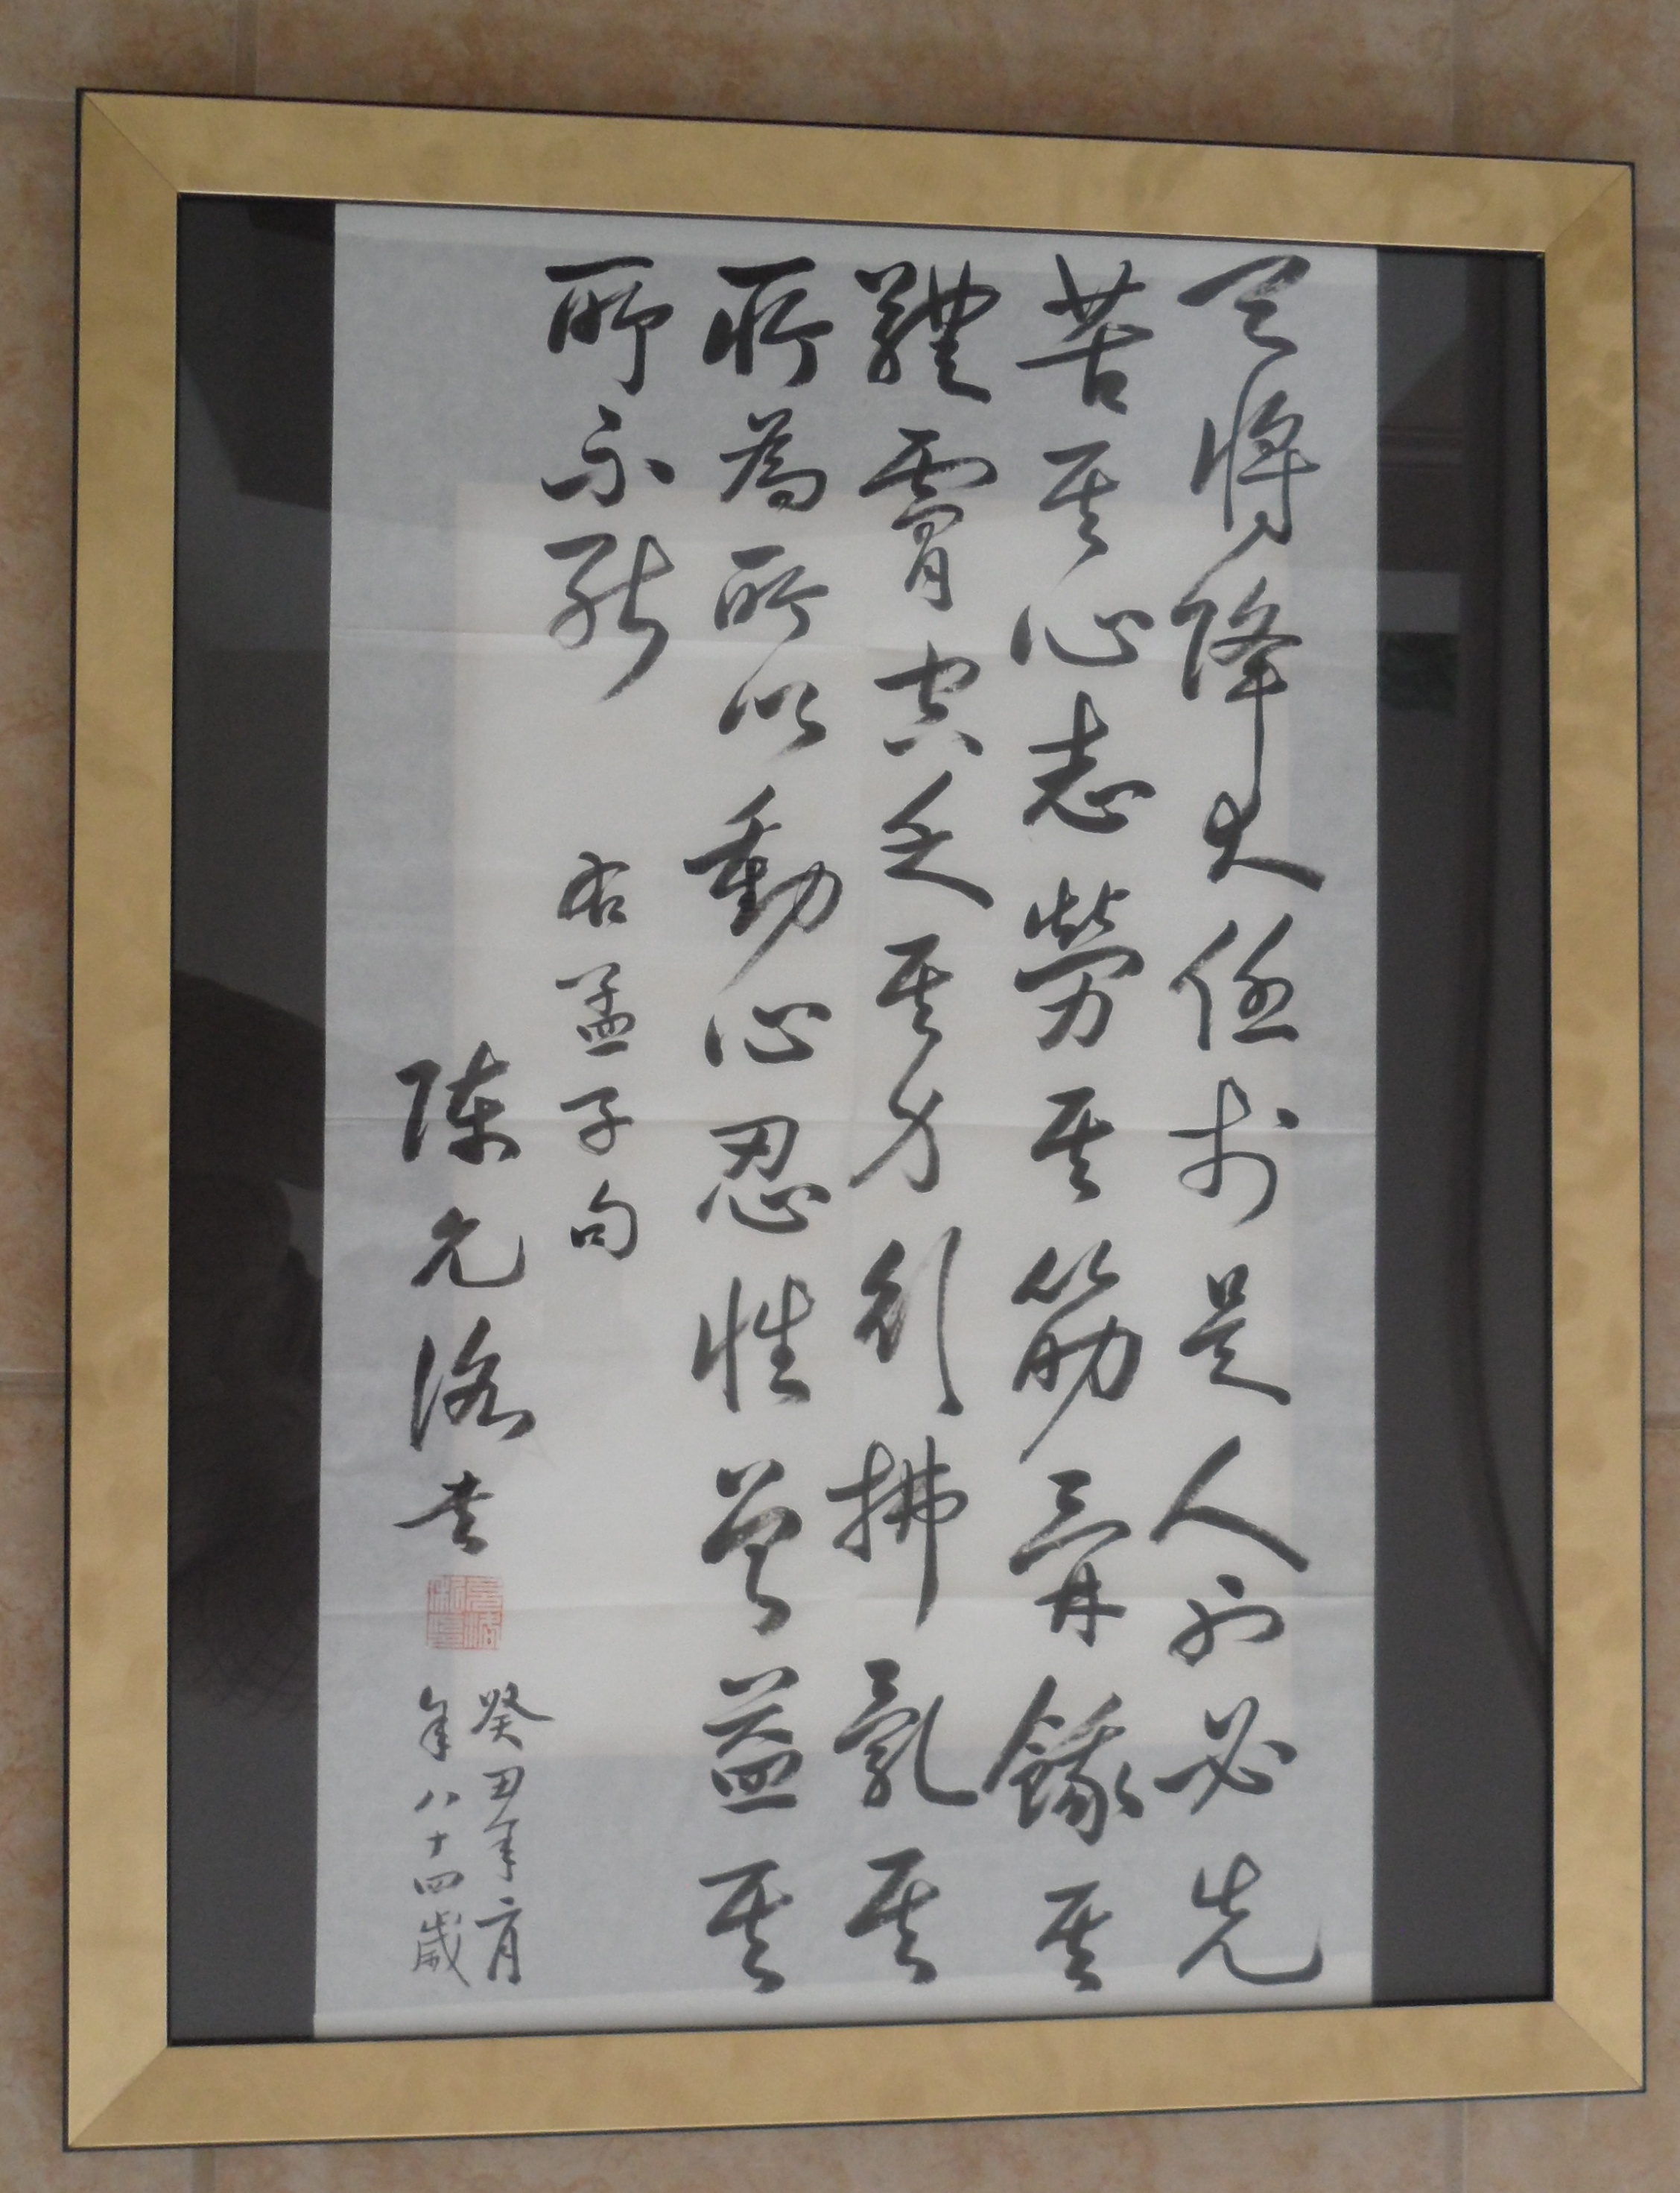 天將降大任於是人也必先
苦其心志勞其筋骨餓其
體膚空乏其身行拂亂其
所為所以動心忍性曾益其
所不能
右孟子句
陳元洛書
癸丑年二月
年八十四歲